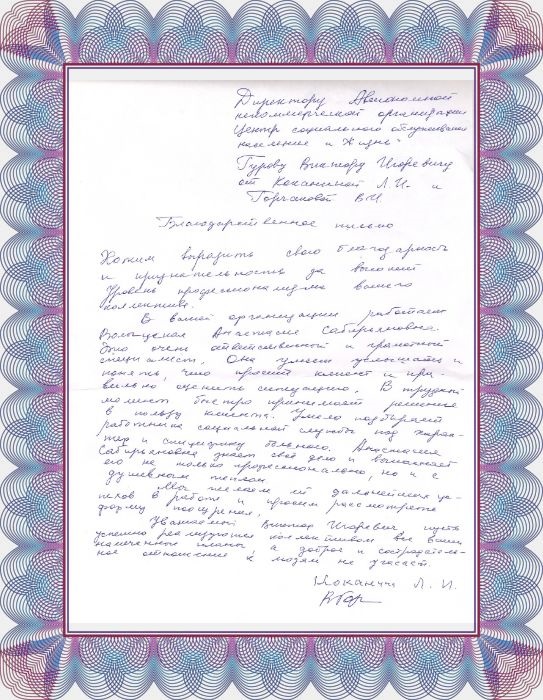 Директору Автономной
некоммерческой организации
Центр социального обслуживания
населения „Жизнь"
Гурову Виктору Игоревичу
от Коканиной Л.И. и
Горчаковой В.И
Благодарственное письмо
Хотим выразить свою благодарность
и признательность за высокий
Уровень профессионализма вашего
коллектива.
В вашей организации работает
Анастасия Сабирьяновна.
Это очень ответственный и грамотный
специалист. Она умеет услышать и
понять чего просит клиент и пра-
вильно оценить ситуацию. В трудный
момент быстро принимает решение
в пользу клиента. Умело подбирает
работника социальной службы под харак-
тер и специфику больного. Анастасия
Сабирьяновна знает своё дело и выполняет
его не только профессионально, но и с
душевным теплом.
Мы желаем ей дальнейших ус-
пехов в работе и просим рассмотреть
форму поощрения.
Уважаемый Виктор Игоревич пусть
успешно реализуются коллективом все ваши
намеченные планы, а доброе и сострадатель-
ное отношение к людям не угасает.
Л. И.